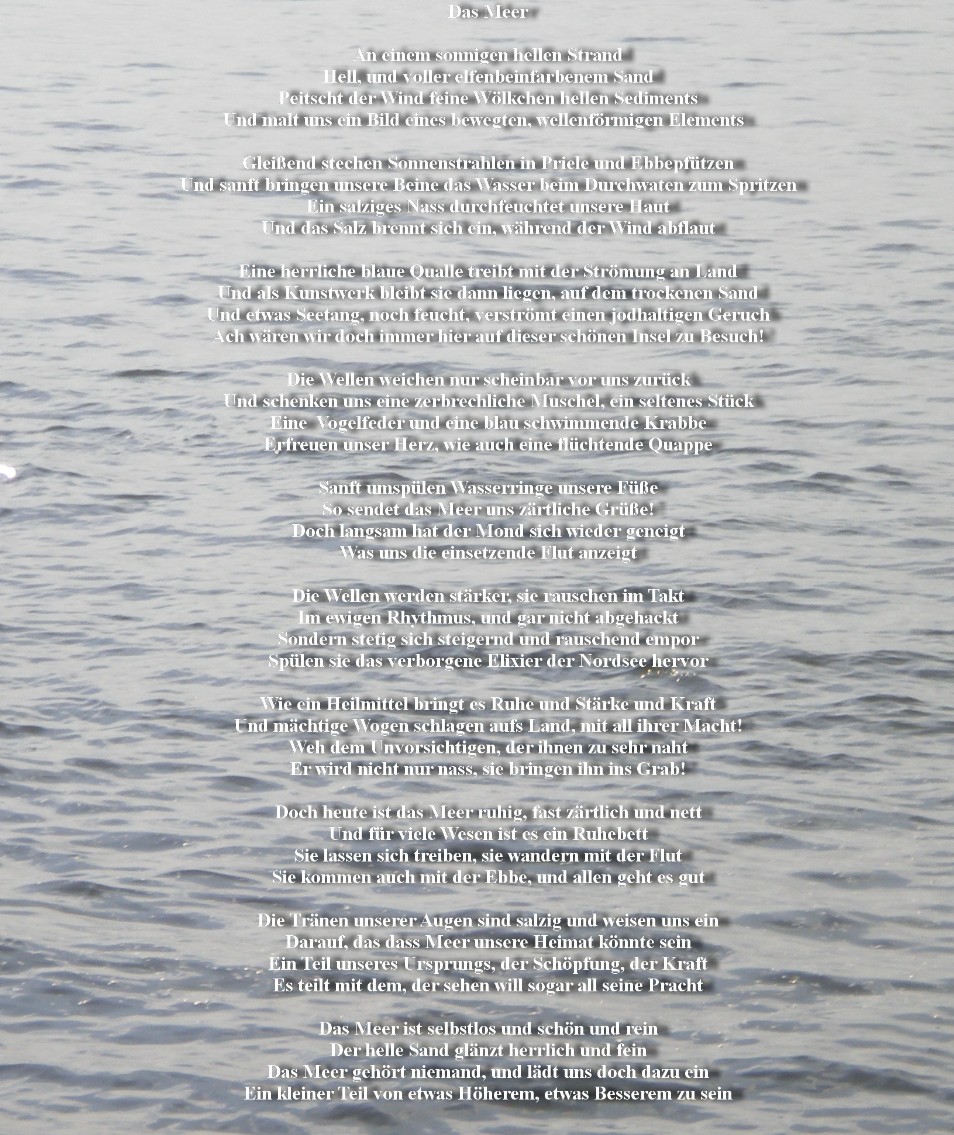 Das Meer
An einem sonnigen hellen Strand
Hell, und voller elfenbeinfarbenem Sand
Peitscht der Wind feine Wölkchen hellen Sediments
Und malt uns ein Bild eines bewegten, wellenförmigen Elements
Gleißend stechen Sonnenstrahlen in Priele und Ebbepfützen
Und sanft bringen unsere Beine das Wasser beim Durchwaten zum Spritzen
Ein salziges Nass durchfeuchtet unsere Haut
Und das Salz brennt sich ein, während der Wind abflaut
Eine herrliche blaue Qualle treibt mit der Strömung an Land
Und als Kunstwerk bleibt sie dann liegen, auf dem trockenen Sand
Und etwas Seetang, noch feucht, verströmt einen jodhaltigen Geruch
Ach wären wir doch immer hier auf dieser schönen Insel zu Besuch!
Die Wellen weichen nur scheinbar vor uns zurück
Und schenken uns eine zerbrechliche Muschel, ein seltenes Stück
Eine Vogelfeder und eine blau schwimmende Krabbe
Erfreuen unser Herz, wie auch eine flüchtende Quappe
Sanft umspülen Wasserringe unsere Füße
So sendet das Meer uns zärtliche Grüße!
Doch langsam hat der Mond sich wieder geneigt
Was uns die einsetzende Flut anzeigt
Die Wellen werden stärker, sie rauschen im Takt
Im ewigen Rhythmus, und gar nicht abgehackt
Sondern stetig sich steigernd und rauschend empor
Spülen sie das verborgene Elixier der Nordsee hervor
Wie ein Heilmittel bringt es Ruhe und Stärke und Kraft
Und mächtige Wogen schlagen aufs Land, mit all ihrer Macht!
Weh dem Unvorsichtigen, der ihnen zu sehr naht
Er wird nicht nur nass, sie bringen ihn ins Grab!
Doch heute ist das Meer ruhig, fast zärtlich und nett
Und für viele Wesen ist es ein Ruhebett
Sie lassen sich treiben, sie wandern mit der Flut
Sie kommen auch mit der Ebbe, und allen geht es gut
Die Tränen unserer Augen sind salzig und weisen uns ein
Darauf, das dass Meer unsere Heimat könnte sein
Ein Teil unseres Ursprungs, der Schöpfung, der Kraft
Es teilt mit dem, der sehen will sogar all seine Pracht
Das Meer ist selbstlos und schön und rein
Der helle Sand glänzt herrlich und fein
Das Meer gehört niemand, und lädt uns doch dazu ein
Ein kleiner Teil von etwas Höherem, etwas Besserem zu sein